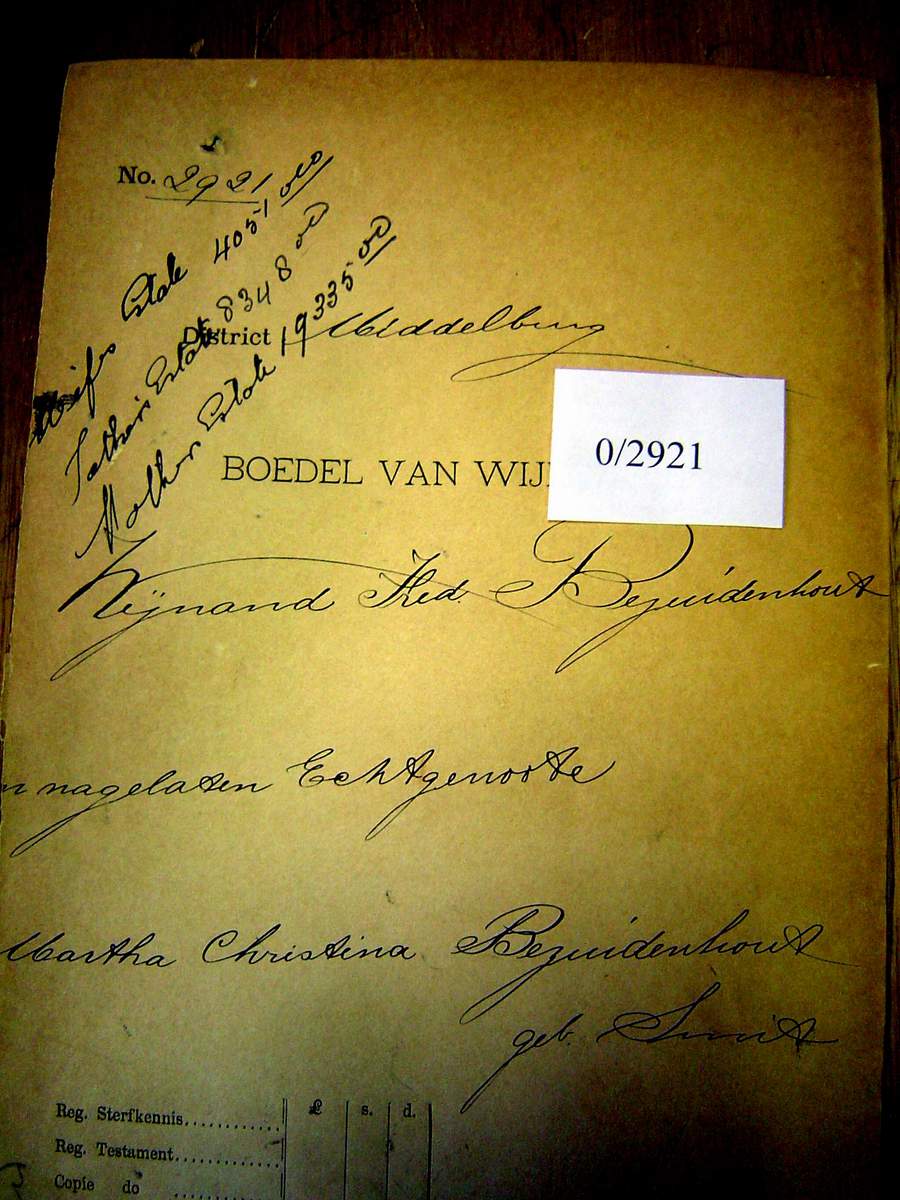 No. 2921
Wife Estate 4051 00
Father Estate 8348 00
Mother Estate 19335 00
District Middelburg
0/2921
BOEDEL VAN WIJ
Wijnand Fred. Bezuidenhout
n nagelaten Echtgenoote
Martha Christina Bezuidenhout
geb. Smit
£ s. d.
Reg. Sterfkennis
Reg. Testament
Copie do